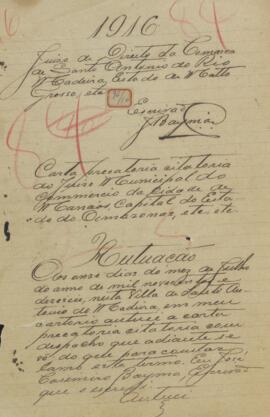 1916
Juizo de Direito da Comarca
de Santo Antonio do Rio
Madeira, Estado de Matto
Grosso, etc
Escrivão
J Bayma
Carta precatoria citatoria
do Juizo Municipal do
Commercio da Cidade de
Manaos, Capital do Esta
do do Amazonas, etc, etc
Autuação
Aos onze dias do mez de Julho
do anno de mil novecentos e
dezeseis, nesta Villa de Santo An
tonio do Madeira, em meu
cartorio autuei a carta
precatoria citatoria com
despacho que adiante se
vê, do que para constar
lavro este termo. Eu José
Casemiro Bayma, Escrivão
que o escrevi
Autuei